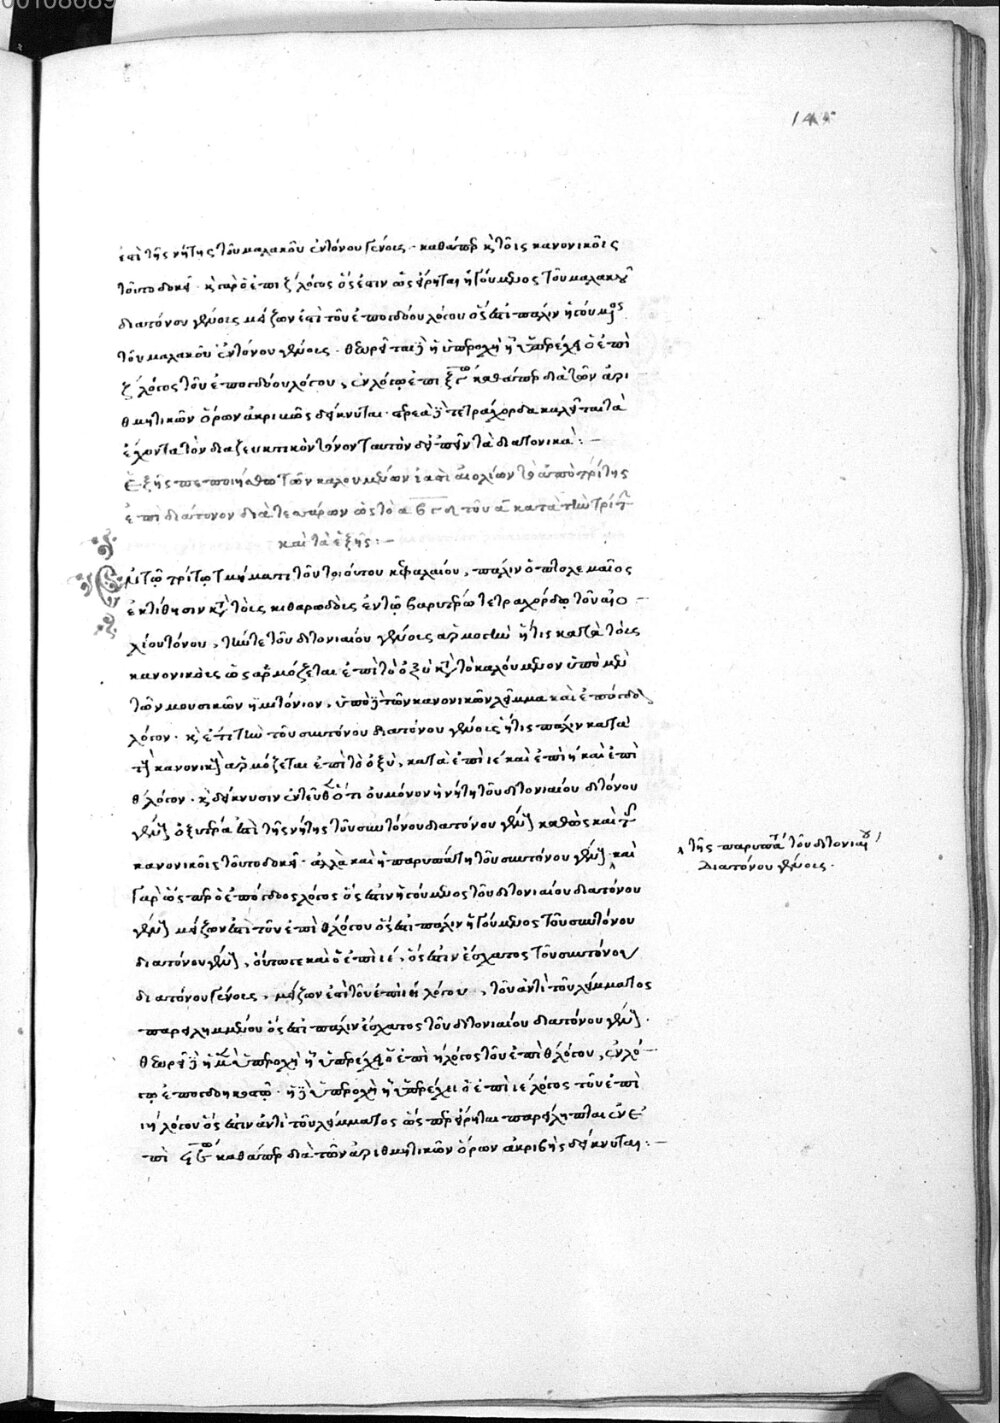 00108089
145
ἐπὶ τῆς νήτης τοῦ μαλακοῦ ἐντόνου γένους · καθάπερ κ τοῖς κανονικοῖς
τοῦτο δοκεῖ · κ γαρ ὁ ἐπι ζ λόγος ὅς ἐστιν ὡς εἴρηται ἡγούμενος τοῦ μαλακοῦ
διατόνου γένους μείζων ἐστὶ τοῦ ἐποεβδόου λόγου ὅς ἐστι πάλιν ἡγούμενος
τοῦ μαλακοῦ ἐντόνου γένους · θεωρεῖται δὲ ἡ ὑπεροχὴ ἣν ὑπερέχει ὁ ἐπὶ
ζ λόγος τοῦ ἐποεβδόου λόγου, ἐν λόγῳ ἐπι καθάπερ διὰ τῶν ἀρι
θμητικῶν ὅρων ἀκριβῶς δείκνυται · τετράχορδα καλεῖται τὰ
ἔχοντα τὸν διαζευκτικὸν τόνον ταυτὸν δ' εἰπεῖν τὰ διατονικά : —
Ἑξῆς πεποιήσθω τῶν καλουμένων ἰαστὶ αἰολίων τὸ ἀπὸ τρίτης
ἐπὶ διάτονον διὰ τεσσάρων ὡς τὸ α β γ δ τοῦ α κατὰ τὴν τρίτην
καὶ τὰ ἑξῆς : —
Ἐν τῷ τρίτῳ τμήματι τοῦ τοιούτου κεφαλαίου, πάλιν ὁ πτολεμαῖος
ἐκτίθησιν κατὰ τοὺς κιθαρωδοὺς ἐν τῷ βαρυτέρω τετραχόρδῳ τοῦ αἰο —
λίου τόνου, τήν τε τοῦ διτονιαίου γένους ἁρμογὴν ἥτις κατὰ τοὺς
κανονικοὺς ὡς ἁρμόζεται ἐπὶ τὸ ὀξὺ κατὰ τὸ καλούμενον ὑπὸ μὲν
τῶν μουσικῶν ἡμιτόνιον, ὑπὸ δὲ τῶν κανονικῶν λεῖμμα καὶ ἐπόγδοον
λόγον · κ ἔτι τὴν τοῦ συντόνου διατόνου γένους ἥτις πάλιν κατὰ
τοὺς κανονικοὺς ἁρμόζεται ἐπὶ τὸ ὀξὺ, κατὰ ἐπὶ ιέ καὶ ἐπὶ ή καὶ ἐπὶ
θ λόγον · κ δείκνυσιν ἐντεῦθεν ὅτι οὐ μόνον ἡ νήτη τοῦ διτονιαίου διτόνου
γένους ὀξυτέρα ἐστὶ τῆς νήτης τοῦ συντόνου διατόνου γένους καθὼς καὶ τοῖς
κανονικοῖς τοῦτο δοκεῖ · ἀλλὰ καὶ ἡ παρυπάτη τοῦ συντόνου γένους · καὶ
γαρ ὥσπερ ὁ ἐπόγδοος λόγος ὅς ἐστιν ἡγούμενος τοῦ διτονιαίου διατόνου
γένους μείζων ἐστὶ τοῦ ἐπὶ θ λόγου ὅς ἐστι πάλιν ἡγούμενος τοῦ συντόνου
διατόνου γένους, οὕτως καὶ ὁ ἐπὶ ιέ, ὅς ἐστιν ἑσχατος τοῦ συντόνου
διατόνου γένους, μείζων ἐστὶ τοῦ ἐπὶ ιή λόγου, τοῦ ἀντὶ τοῦ λείμματος
παρειλημμένου ὅς ἐστι πάλιν ἔσχατος τοῦ διτονιαίου διατόνου γένους ·
θεωρεῖται δὲ ἡ μὲν ὑπεροχὴ ἣν ὑπερέχει ὁ ἐπὶ ή λόγος τοῦ ἐπὶ θ λόγου, ἐν λό —
γῳ ἐποεβδηκοστῷ · ἡ δὲ ὑπεροχὴ ἣν ὑπερέχει ὁ ἐπὶ ιέ λόγος τοῦ ἐπὶ
ιή λόγου ὅς ἐστιν ἀντὶ τοῦ λείμματος ὥσπερ εἴρηται παρείληπται ἐν ἐ
πὶ καθάπερ διὰ τῶν ἀριθμητικῶν ὅρων ἀκριβῆς δείκνυται : —
τῆς παρυπάτης τοῦ διτονιαίου
διατόνου γένους ·